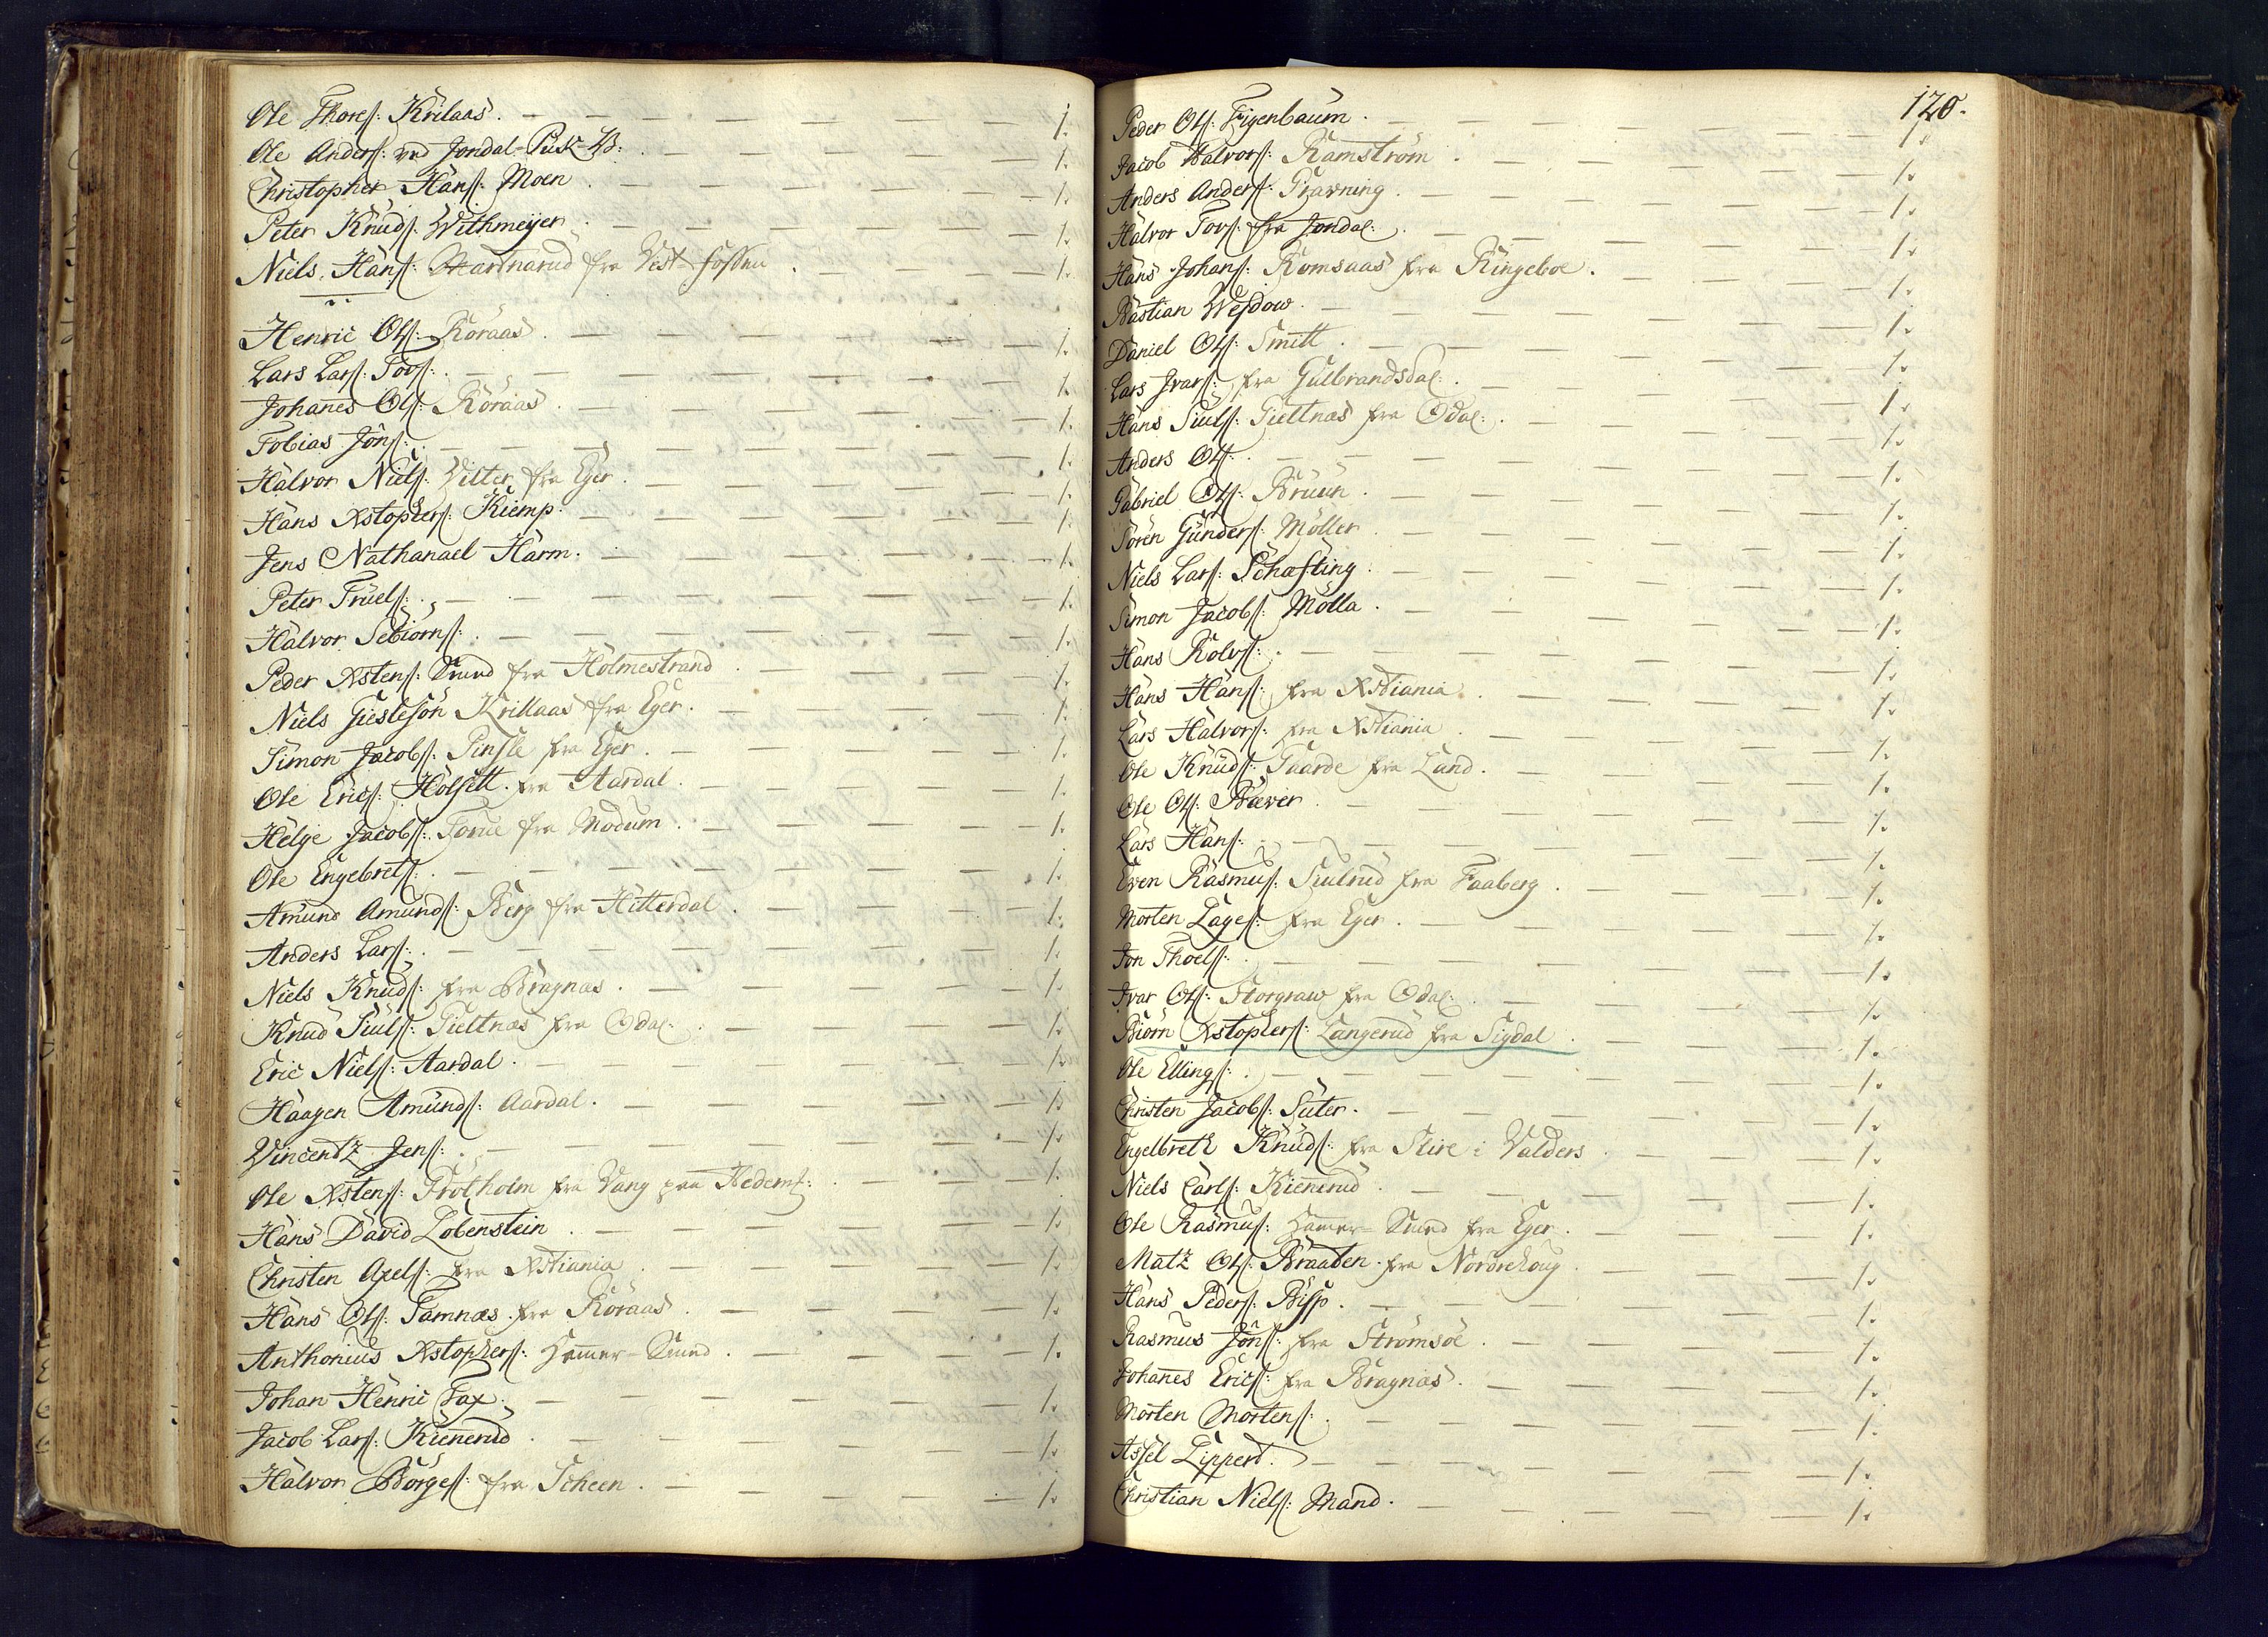 Ole Thoresſ: Krilaas. 1.
Ole Andersſ: ved Jondal-Puk-W: 1.
Christopher Hansſ: Moen 1.
Peter Knudsſ: Withmeijer 1.
Niels Hansſ: fra Vest-Fossen 1.
Henric Olsſ: Röraas 1.
Lars Larsſ: Torsſ: 1.
Johanes Olsſ: Röraas 1.
Tobias Jönsſ: 1.
Halvor Nielsſ: Vitter fra Eger 1.
Hans Xstophersſ: Kiemp. 1.
Jens Nathanael Harm. 1.
Peter Truelsſ: 1.
Halvor Sebiörnsſ: 1.
Peder Xstensſ: Smed fra Holmestrand 1.
Niels Giesleſön Krillaas fra Eger. 1.
Simon Jacobsſ: fra Eger. 1.
Ole Ericsſ: Holsett. fra Aardal 1.
Helge Jacobsſ: fra Modum 1.
Ole Engebretsſ: 1.
Amund Amundsſ: Berg fra Hitterdal 1.
Anders Larsſ: 1.
Niels Knudsſ: fra Bragnæs. 1.
Knud Siulsſ: Gieltnæs fra Odal. 1.
Eric Nielsſ: Aardal 1.
Haagen Amundsſ: Aardal. 1.
Vincentz Jensſ: 1.
Ole Xstensſ: Grötholm fra Vang paa Hedemſ: 1.
Hans David Lobenstein 1.
Christen Axelsſ: fra Xstiania 1.
Hans Olsſ: Tamnæs. fra Röraas 1.
Anthonius Xstophersſ: Hamer-Smed. 1.
Johan Henric Fax. 1.
Jacob Larsſ: Kiennerud 1.
Halvor Börgesſ: fra Scheen. 1.
120.
Peder Olsſ: Figenbaum. 1.
Jacob Halvorsſ: Ramström 1.
Anders Andersſ: Gravning. 1.
Halvor Torsſ: fra Jondal. 1.
Hans Johansſ: Romsaas fra Ringeboe. 1.
Bastian Wesdow. 1.
Daniel Olsſ: Smitt. 1.
Lars Ivarsſ: fra Gulbrandsdal. 1.
Hans Siulsſ: Gieltnæs fra Odal. 1.
Anders Olsſ: 1.
Gabriel Olsſ: Bruun. 1.
Sören Gundersſ: Möller 1.
Niels Larsſ: Schafting. 1.
Simon Jacobsſ: Mölla. 1.
Hans Rolvsſ: 1.
Hans Hansſ: fra Xstiania. 1.
Lars Halvorsſ: fra Xstiania 1.
Ole Knudsſ: Gaarde fra Land. 1.
Ole Olsſ: Bæver 1.
Lars Hansſ: 1.
Even Rasmusſ: Siulrud fra Faaberg. 1.
Morten Lagesſ: fra Eger. 1.
Jon Thoelsſ: 1.
Ivar Olsſ: Storgraw fra Odal. 1.
Biörn Xstophersſ: Langerud fra Sigdal. 1.
Ole Ellingsſ: 1.
Christen Jacobsſ: Suter. 1.
Engelbreth Knudsſ: fra Slire i Valders 1.
Niels Carlsſ: Kiennerud. 1.
Ole Rasmusſ: Hamer-Smed fra Eger. 1.
Matz Olsſ: Braaten. fra Nordrehoug. 1.
Hans Pedersſ: Bisp. 1.
Rasmus Jönsſ: fra Strömsöe. 1.
Johanes Ericsſ: fra Bragnæs. 1.
Morten Mortensſ: 1.
Assel Lippert. 1.
Christian Nielsſ: Mand. 1.